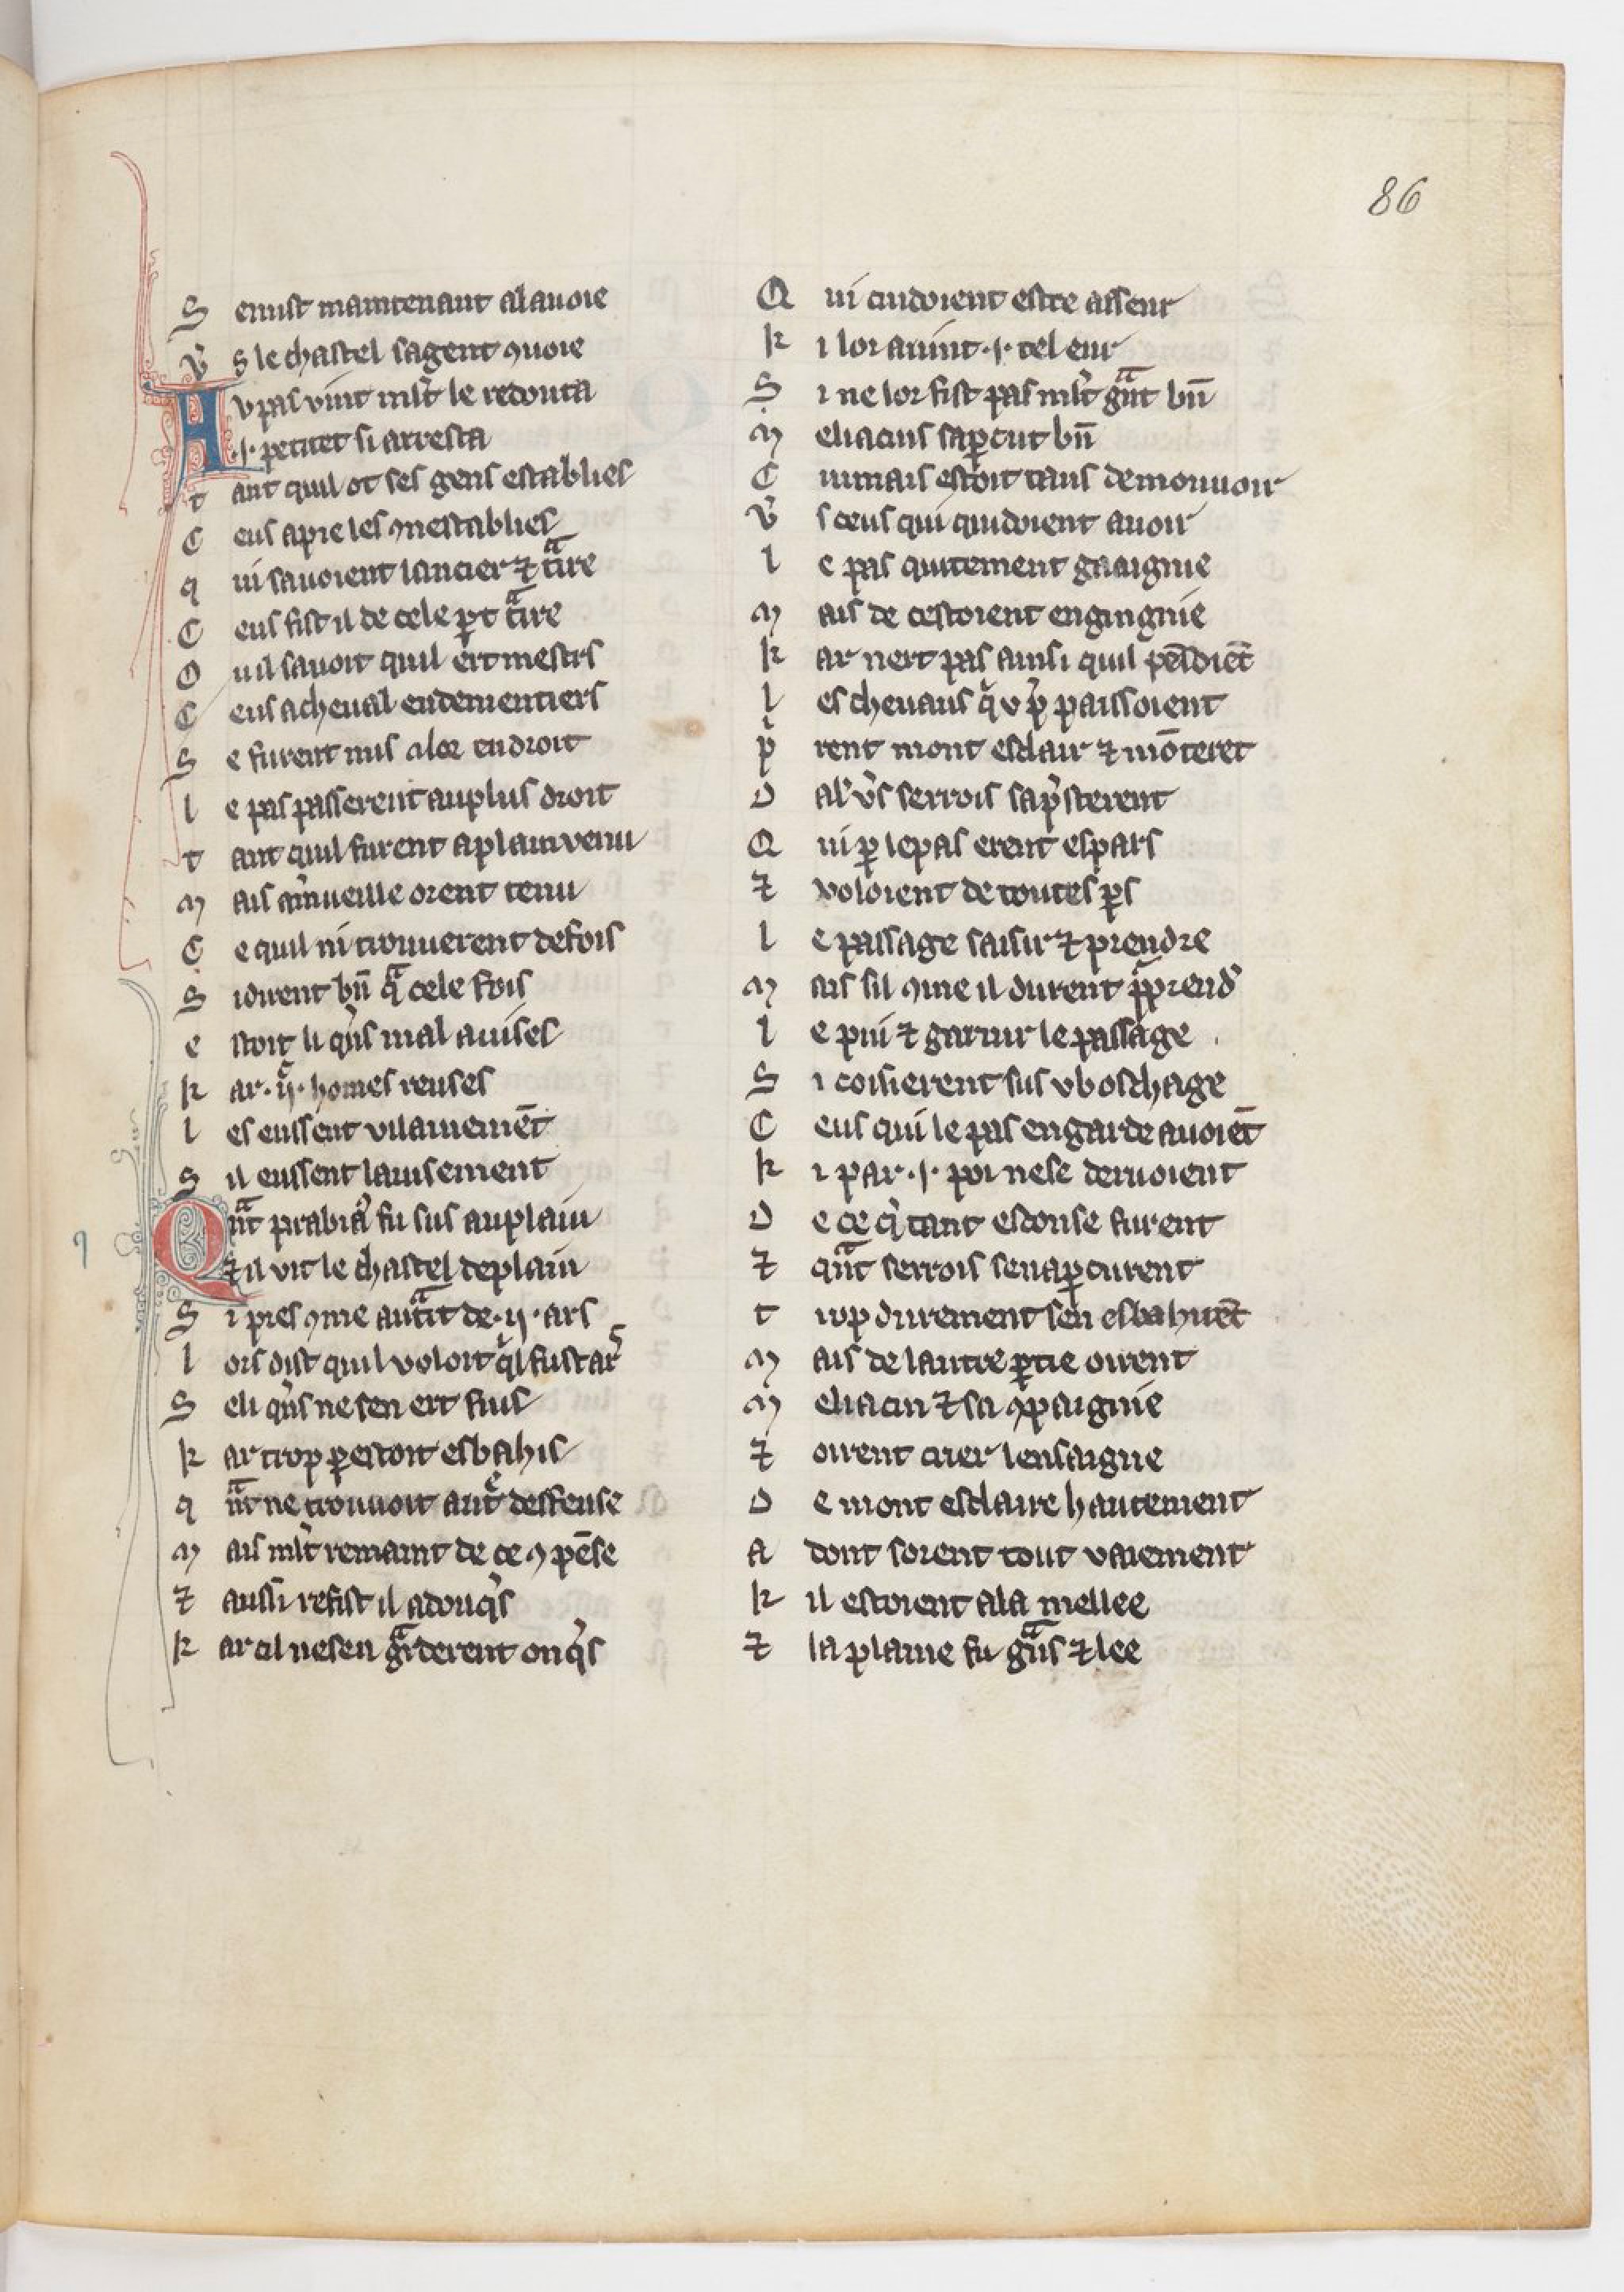 86
S emist maintenant a la uoie
v̾ s le chastel sa gent ꝯuoie
A v pas vint ml̾t le redouta
.i. petitet si arresta
t ant quil ot ses gens establies
C eus a pie les ꝯnestablies
q ui sauoient lancier ⁊ tͣire
C eus fist il de cele ꝑt tͣire
O u il sauoit quil ert mestrs
C eus a cheual endementiers
S e furent mis a loꝛ endroit
l e pas passerent au plus droit
t ant quil furent a plain venu
M ais a m̾ueille orent tenu
C e quil ni trouuerent defois
S i dirent bn̄ qͣ cele fois
e stoit li qͥns mal auises
k ar .ij.ͨ homes reuses
l es eussent vilainemēt
S il eussent lauisement
Q nͣt pirabiaͫ fu sus au plain
⁊ il vit le chastel de plain
S i pres ꝯme au tͣit de .ij. ars
l ors dist quil voloit qͥl fust ars̾
S e li qͥns ne sen ert fuis
k ar trop ꝑ estoit esbahis
q nͣt ne trouuoit autͤ deffense
M ais ml̾t remaint de ce ꝯ pēse
⁊ aussi refist il adonqͥs
k ar cil ne sen gͣderent onqͥs
Q ui cuidoient estre asseur
k i lor auint .i. tel eur
S i ne lor fist pas ml̾t gͣnt bn̄
M eliacins saꝑcut bn̄
C uimais estoit tans de mouuoir
v̾ s ceus qui quidoient auoir
l e pas quitement gaaignie
M ais de cestoient engingnie
k ar nert pas ainsi quil pēsoiēt
l es cheuaus qͥ v pͤ paissoient
pͥ rent mont esclair ⁊ mōterēt
D al̾ v̾s serrois sap̾sterent
Q ui ꝑ le pas erent espars
⁊ voloient de toutes ꝑs
l e passage saisir ⁊ prendre
M ais sil ꝯme il durent ꝑprend̾
l e pui ⁊ garnir le passage
S i coisierent sus v boschage
C eus qui le pas en garde auoiēt
k i par .i. poi ne se deruoient
D e ce qͥ tant esconse furent
⁊ qͣnt serrois sen aꝑcurent
t rop durement sen esbahirēt
M ais de lautre ꝑtie oirent
M eliacin ⁊ sa ꝯpaignie
⁊ oirent crier lensaigne
D e mont esclaire hautement
a dont sorent tout vraiement
k il estoient a la mellee
⁊ la plaine fu gͣns ⁊ lee